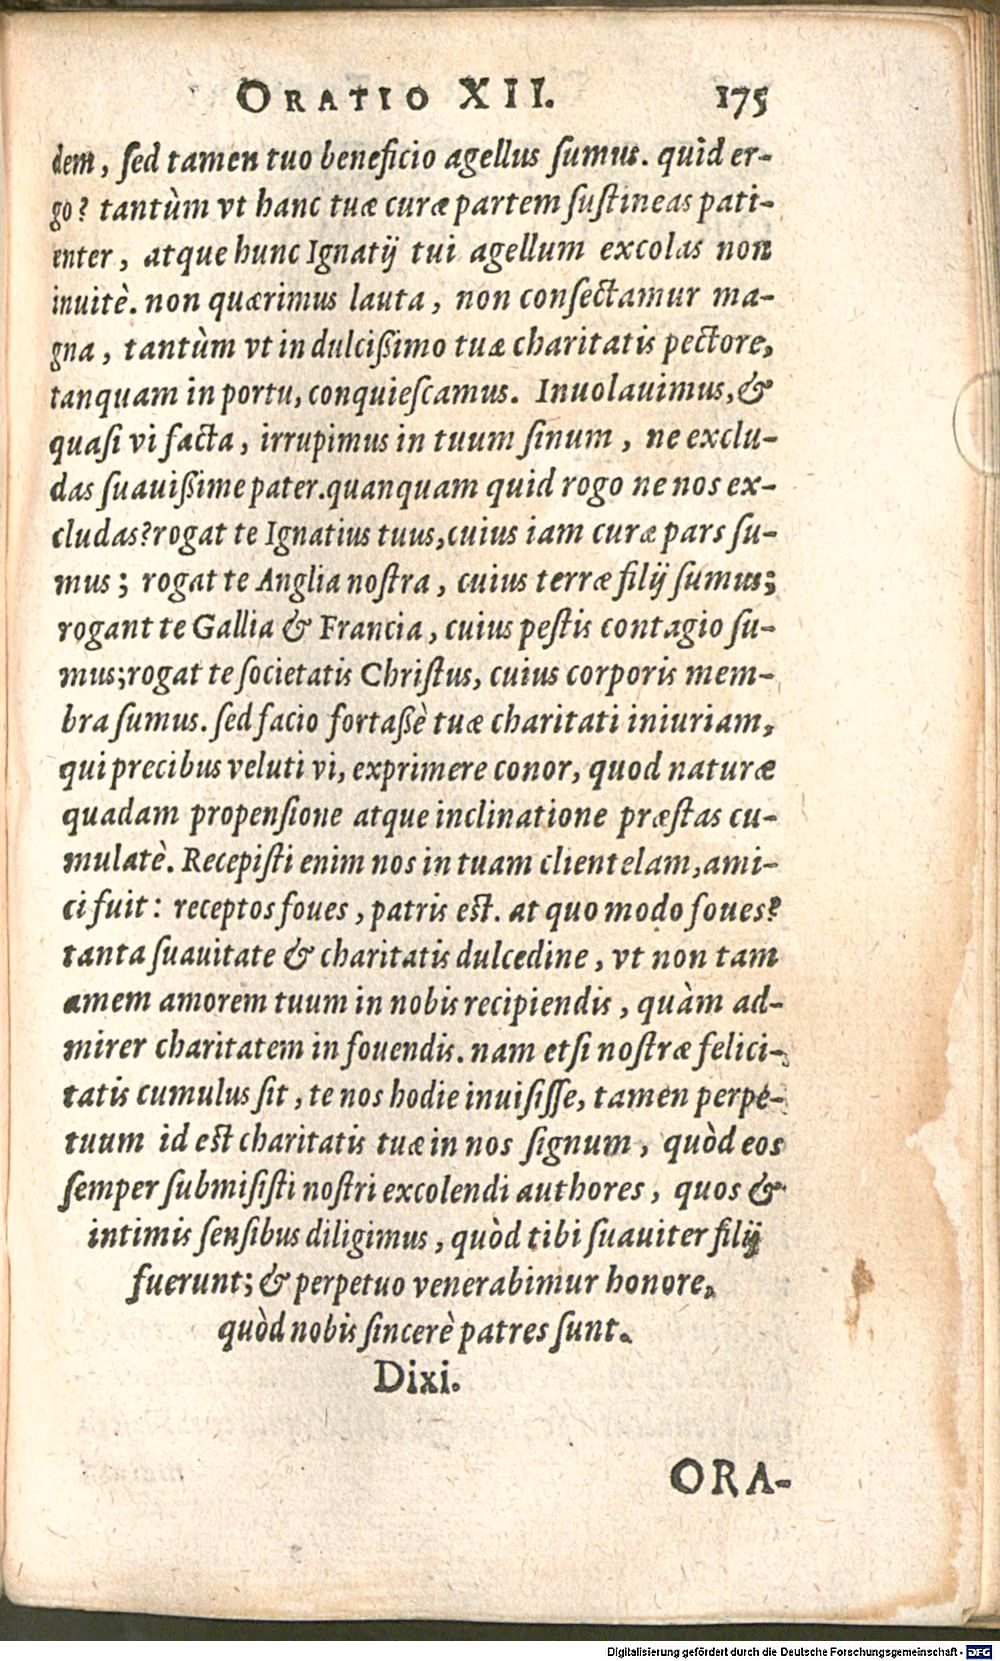 ORATIO XII. 175
dem, sed tamen tuo beneficio agellus sumus. quid er-
go? tantùm vt hanc tuæ curæ partem sustineas pati-
enter, atque hunc Ignatij tui agellum excolas non
inuitè. non quærimus lauta, non consectamur ma-
gna, tantùm vt in dulcißimo tuæ charitatis pectore,
tanquam in portu, conquiescamus. Inuolauimus, &
quasi vi facta, irrupimus in tuum sinum, ne exclu-
das suauißime pater. quanquam quid rogo ne nos ex-
cludas? rogat te Ignatius tuus, cuius iam curæ pars su-
mus; rogat te Anglia nostra, cuius terræ filij sumus;
rogant te Gallia & Francia, cuius pestis contagio su-
mus; rogat te societatis Christus, cuius corporis mem-
bra sumus. sed facio fortaßè tuæ charitati iniuriam,
qui precibus veluti vi, exprimere conor, quod naturæ
quadam propensione atque inclinatione præstas cu-
mulatè. Recepisti enim nos in tuam clientelam, ami-
ci fuit: receptos foues, patris est. at quo modo foues?
tanta suauitate & charitatis dulcedine, vt non tam
amem amorem tuum in nobis recipiendis, quàm ad-
mirer charitatem in fouendis. nam etsi nostræ felici-
tatis cumulus sit, te nos hodie inuisisse, tamen perpe-
tuum id est charitatis tuæ in nos signum, quòd eos
semper submisisti nostri excolendi authores, quos &
intimis sensibus diligimus, quòd tibi suauiter filij
fuerunt; & perpetuo venerabimur honore,
quòd nobis sincerè patres sunt.
Dixi.
ORA-
Digitalisierung gefördert durch die Deutsche Forschungsgemeinschaft - DFG